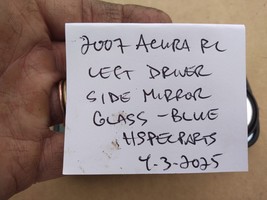 2007 ACURA RL
LEFT DRIVER
SIDE MIRROR
GLASS - BLUE
HSPECPARTS
4-3-2025